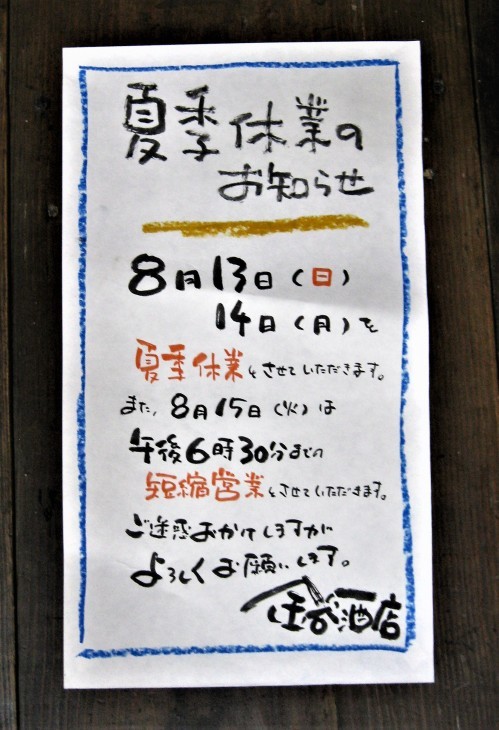 夏季休業の
お知らせ
8月13日(日)
14日(月)を
夏季休業とさせていただきます。
また、8月15日(火)は
午後6時30分までの
短縮営業とさせていただきます。
ご迷惑おかけしますが
よろしくお願いします。
酒店